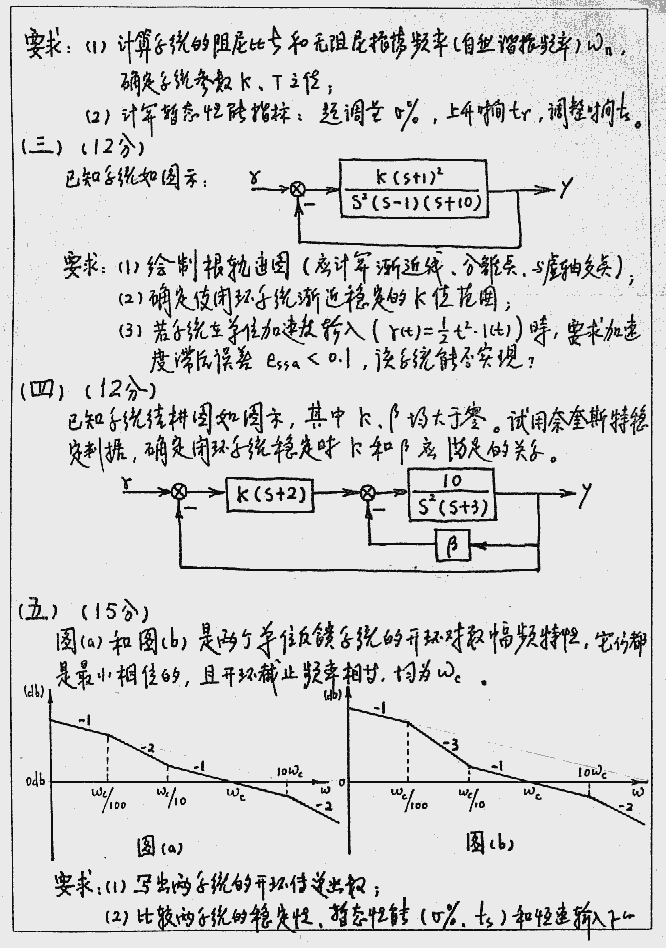 要求：(1) 计算系统的阻尼比ξ和无阻尼振荡频率(自然谐振频率)ωn，
确定系统参数K、T之值；
(2) 计算暂态性能指标：超调量σ%，上升时间tr，调整时间ts。
(三) (12分)
已知系统如图示：
r
K(S+1)²
S²(S-1)(S+10)
y
−
要求：(1) 绘制根轨迹图(应计算渐近线、分离点、与虚轴交点)；
(2) 确定使闭环系统渐近稳定的K值范围；
(3) 若系统在单位加速度输入(r(t)=½t²·1(t))时，要求加速
度滞后误差 essa<0.1，该系统能否实现？
(四) (12分)
已知系统结构图如图示，其中K、β均大于零。试用奈奎斯特稳
定判据，确定闭环系统稳定时K和β应满足的关系。
r
K(S+2)
10
S²(S+3)
y
−
−
β
(五) (15分)
图(a)和图(b)是两个单位反馈系统的开环对数幅频特性，它们都
是最小相位的，且开环截止频率相等，均为ωc。
(db)
-1
-2
-1
10ωc
0db
ωc/100
ωc/10
ωc
ω
-2
图(a)
(db)
-1
-3
-1
10ωc
0
ωc/100
ωc/10
ωc
ω
-2
图(b)
要求：(1) 写出两系统的开环传递函数；
(2) 比较两系统的稳定性、暂态性能(σ%、ts)和恒速输入下